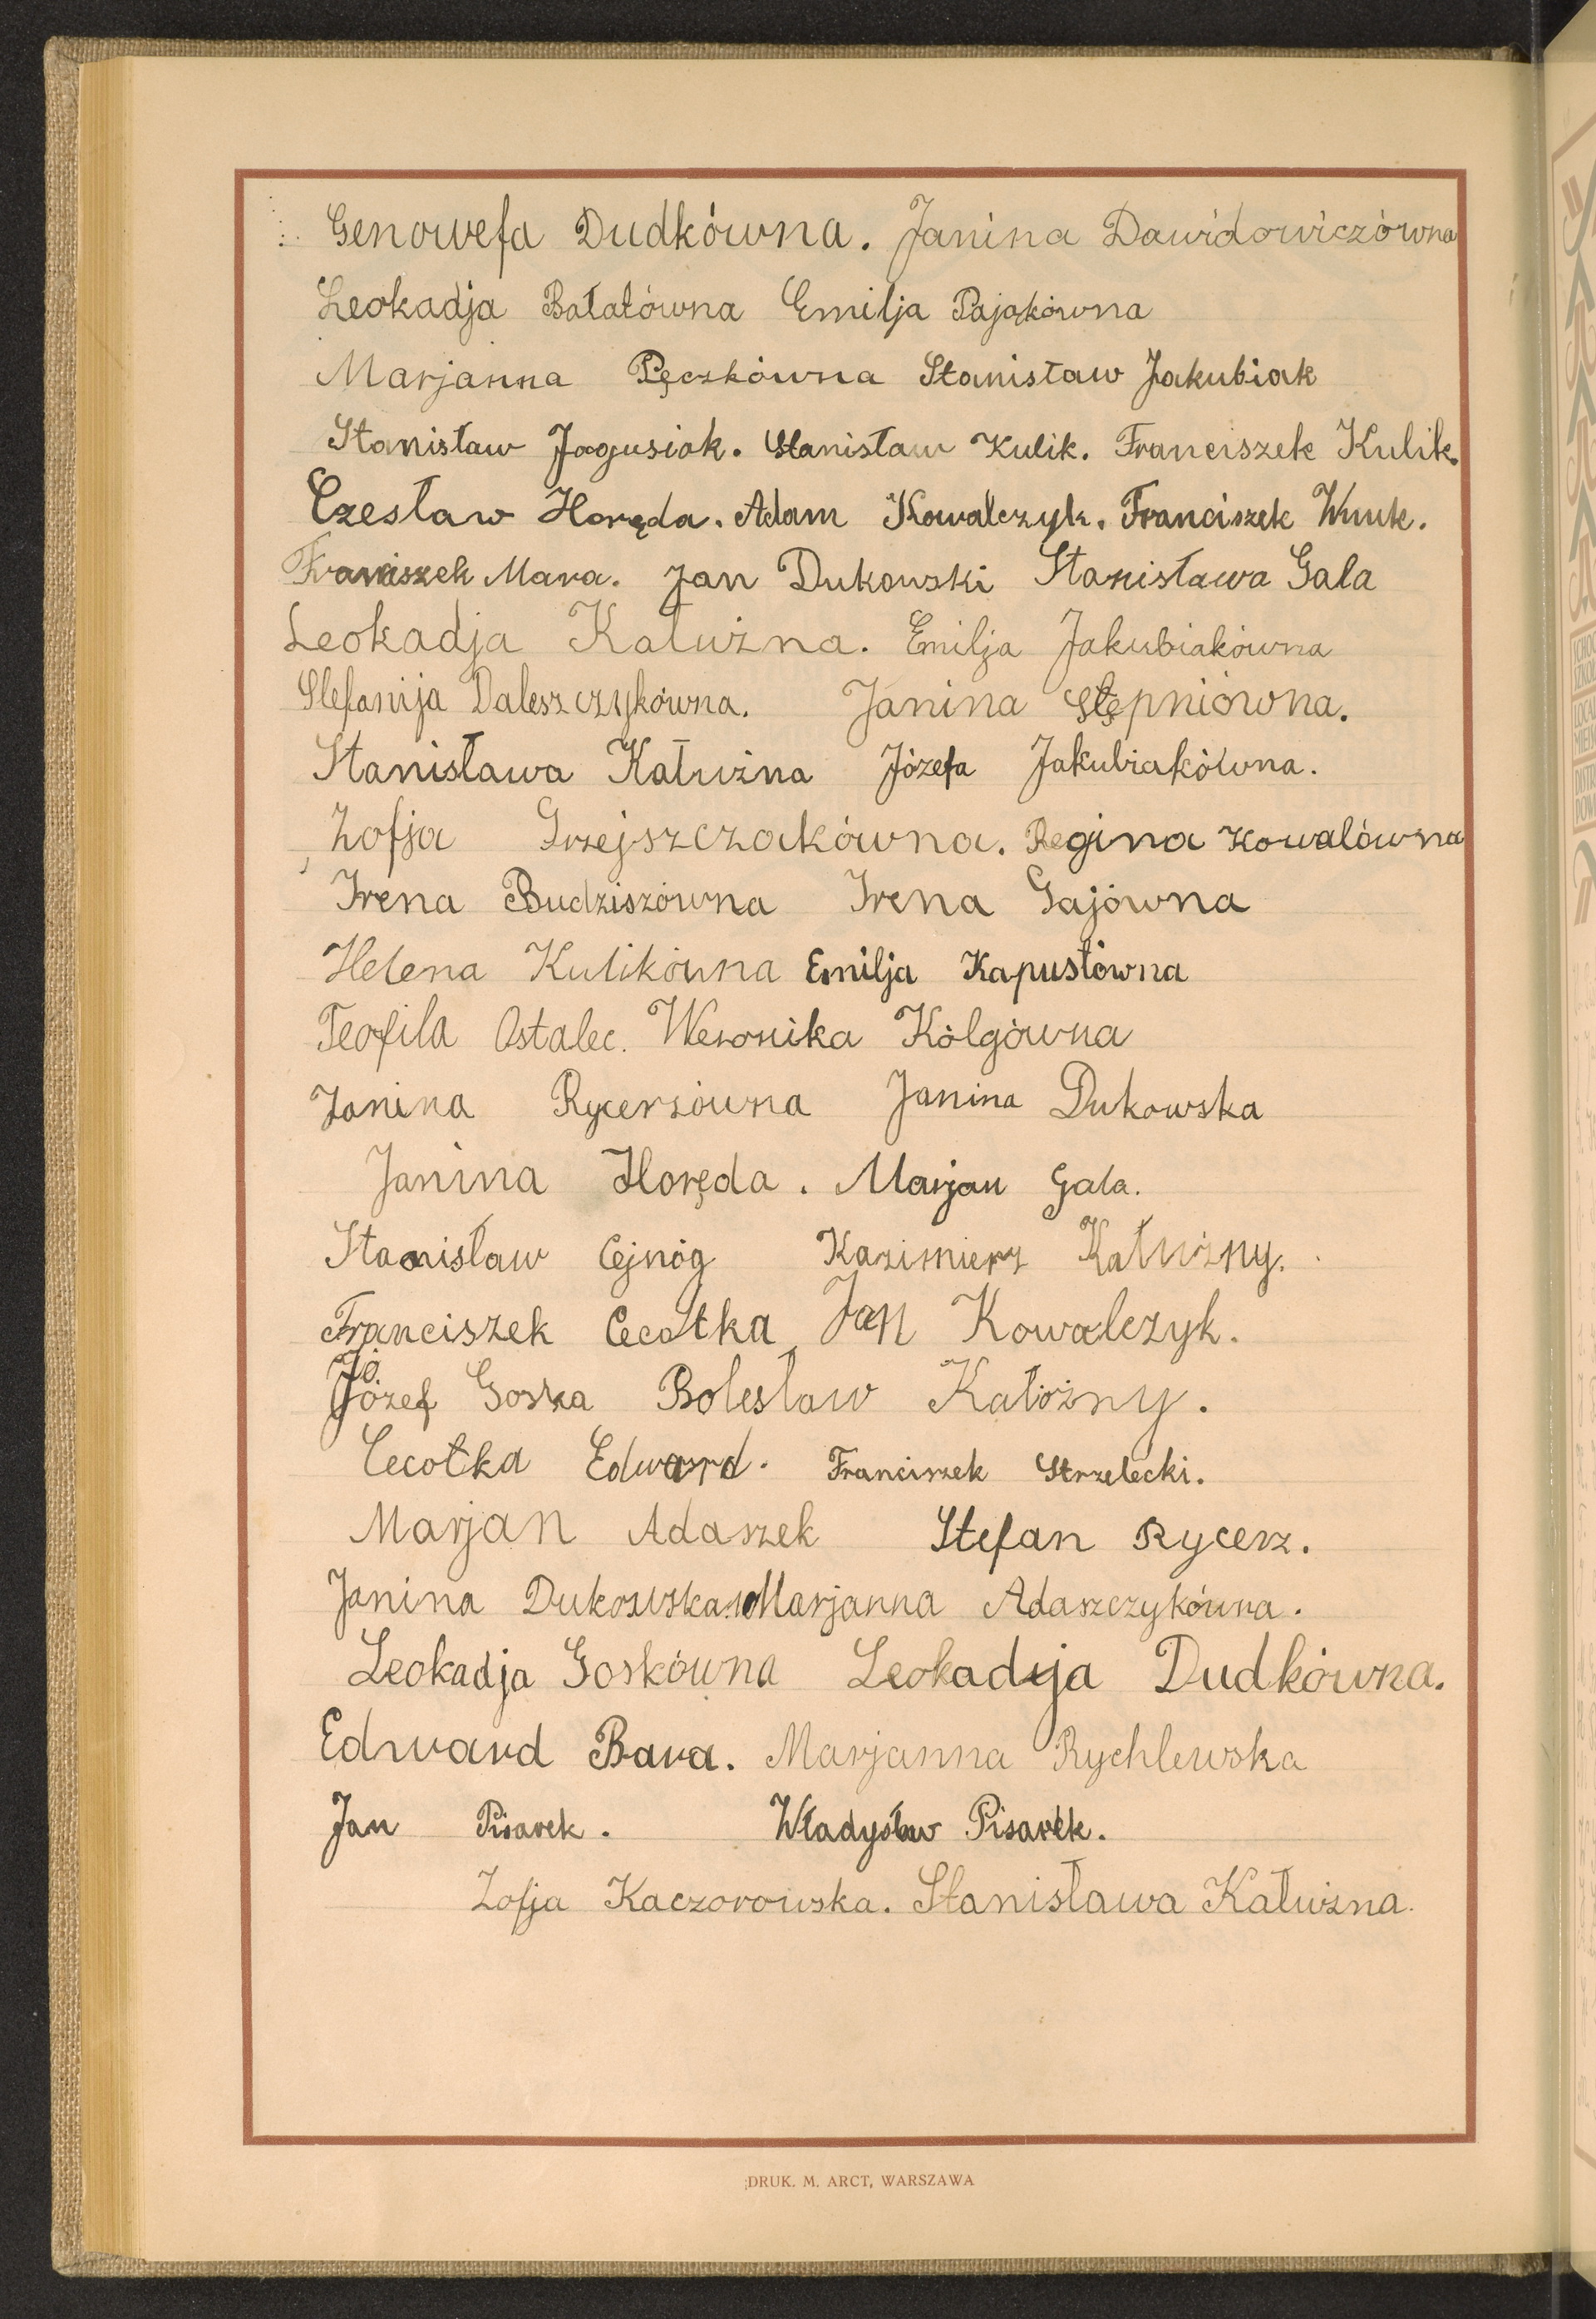 Genowefa Dudkówna. Janina Dawidowiczówna
Leokadja Bałatówna Emilja Pająkówna
Marjanna Pęczkówna Stanisław Jakubiak
Stanisław Jagusiak. Stanisław Kulik. Franciszek Kulik.
Czesław Horęda. Adam Kowalczyk. Franciszek Wnuk.
Franiszek Mara. Jan Dukowski Stanisława Gala
Leokadja Kałużna. Emilja Jakubiakówna
Stefanija Daleszczykówna. Janina Stępniówna.
Stanisława Kałużna Józefa Jakubiakówna.
Zofja Grzejszczakówna. Regina Kowalówna
Irena Budziszówna Irena Gajówna
Helena Kulikówna Emilja Kapustówna
Teofila Ostalec. Weronika Kólgówna
Janina Rycerzówna Janina Dukowska
Janina Horęda. Marjan Gala.
Stanisław Cejnóg Kazimierz Kałużny.
Franciszek Cecotka Jan Kowalczyk.
Józef Goska Bolesław Kałóżny.
Cecotka Edward. Franciszek Strzelecki.
Marjan Adaszek Stefan Rycerz.
Janina Dukowska. Marjanna Adaszczykówna.
Leokadja Goskówna Leokadija Dudkówna.
Edward Bara. Marjanna Rychlewska
Jan Pisarek. Władysław Pisarek.
Zofja Kaczorowska. Stanisława Kałużna.
DRUK. M. ARCT, WARSZAWA